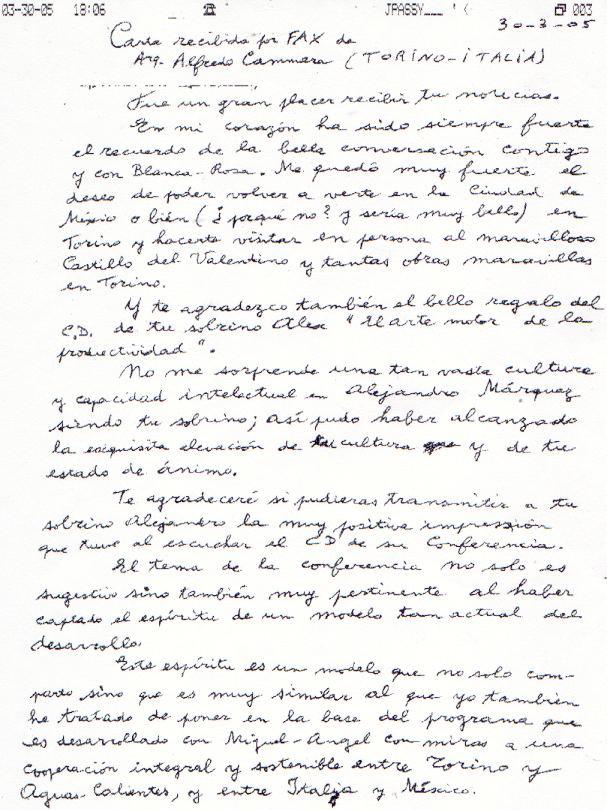 03-30-05 18:06 JPASSY___ '( 003
30-3-05
Carta recibida por FAX de
Arq. Alfredo Cammara (TORINO-ITALIA)
Fue un gran placer recibir tu noticias.
En mi corazón ha sido siempre fuerte
el recuerdo de la bella conversación contigo
y con Blanca-Rosa. Me quedó muy fuerte el
deseo de poder volver a verte en la Ciudad de
México o bién (¿porqué no? y sería muy bello) en
Torino y hacerte visitar en persona al maravilloso
Castillo del Valentino y tantas obras maravillas
en Torino.
Y te agradezco también el bello regalo del
C.D. de tu sobrino Alex "El arte motor de la
productividad".
No me sorprende una tan vasta cultura
y capacidad intelectual en Alejandro Márquez
siendo tu sobrino; así pudo haber alcanzado
la exquisita elevación de cultura y de tu
estado de ánimo.
Te agradeceré si pudieras transmitir a tu
sobrino Alejandro la muy positiva impressión
que tuve al escuchar el CD de su Conferencia.
El tema de la conferencia no solo es
sugestivo sino también muy pertinente al haber
captado el espíritu de un modelo tan actual del
desarrollo.
Este espíritu es un modelo que no solo com-
parto sino que es muy similar al que yo también
he tratado de poner en la base del programa que
es desarrollado con Miguel-Angel con miras a una
cooperación integral y sostenible entre Torino y
Aguas-Calientes, y entre Italia y México.